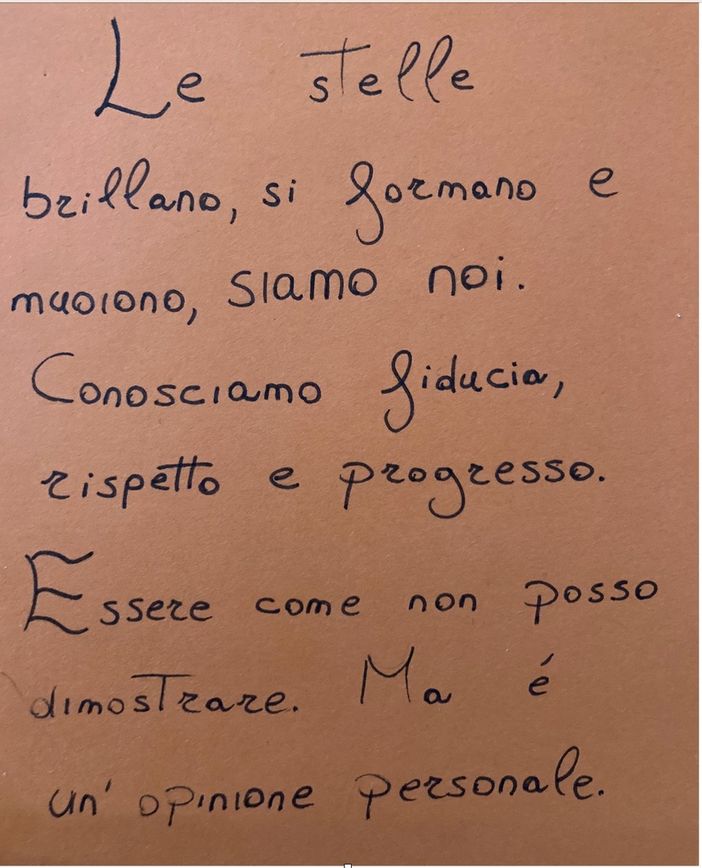 Le stelle
brillano, si formano e
muoiono, siamo noi.
Conosciamo fiducia,
rispetto e progresso.
Essere come non posso
dimostrare. Ma é
un' opinione personale.